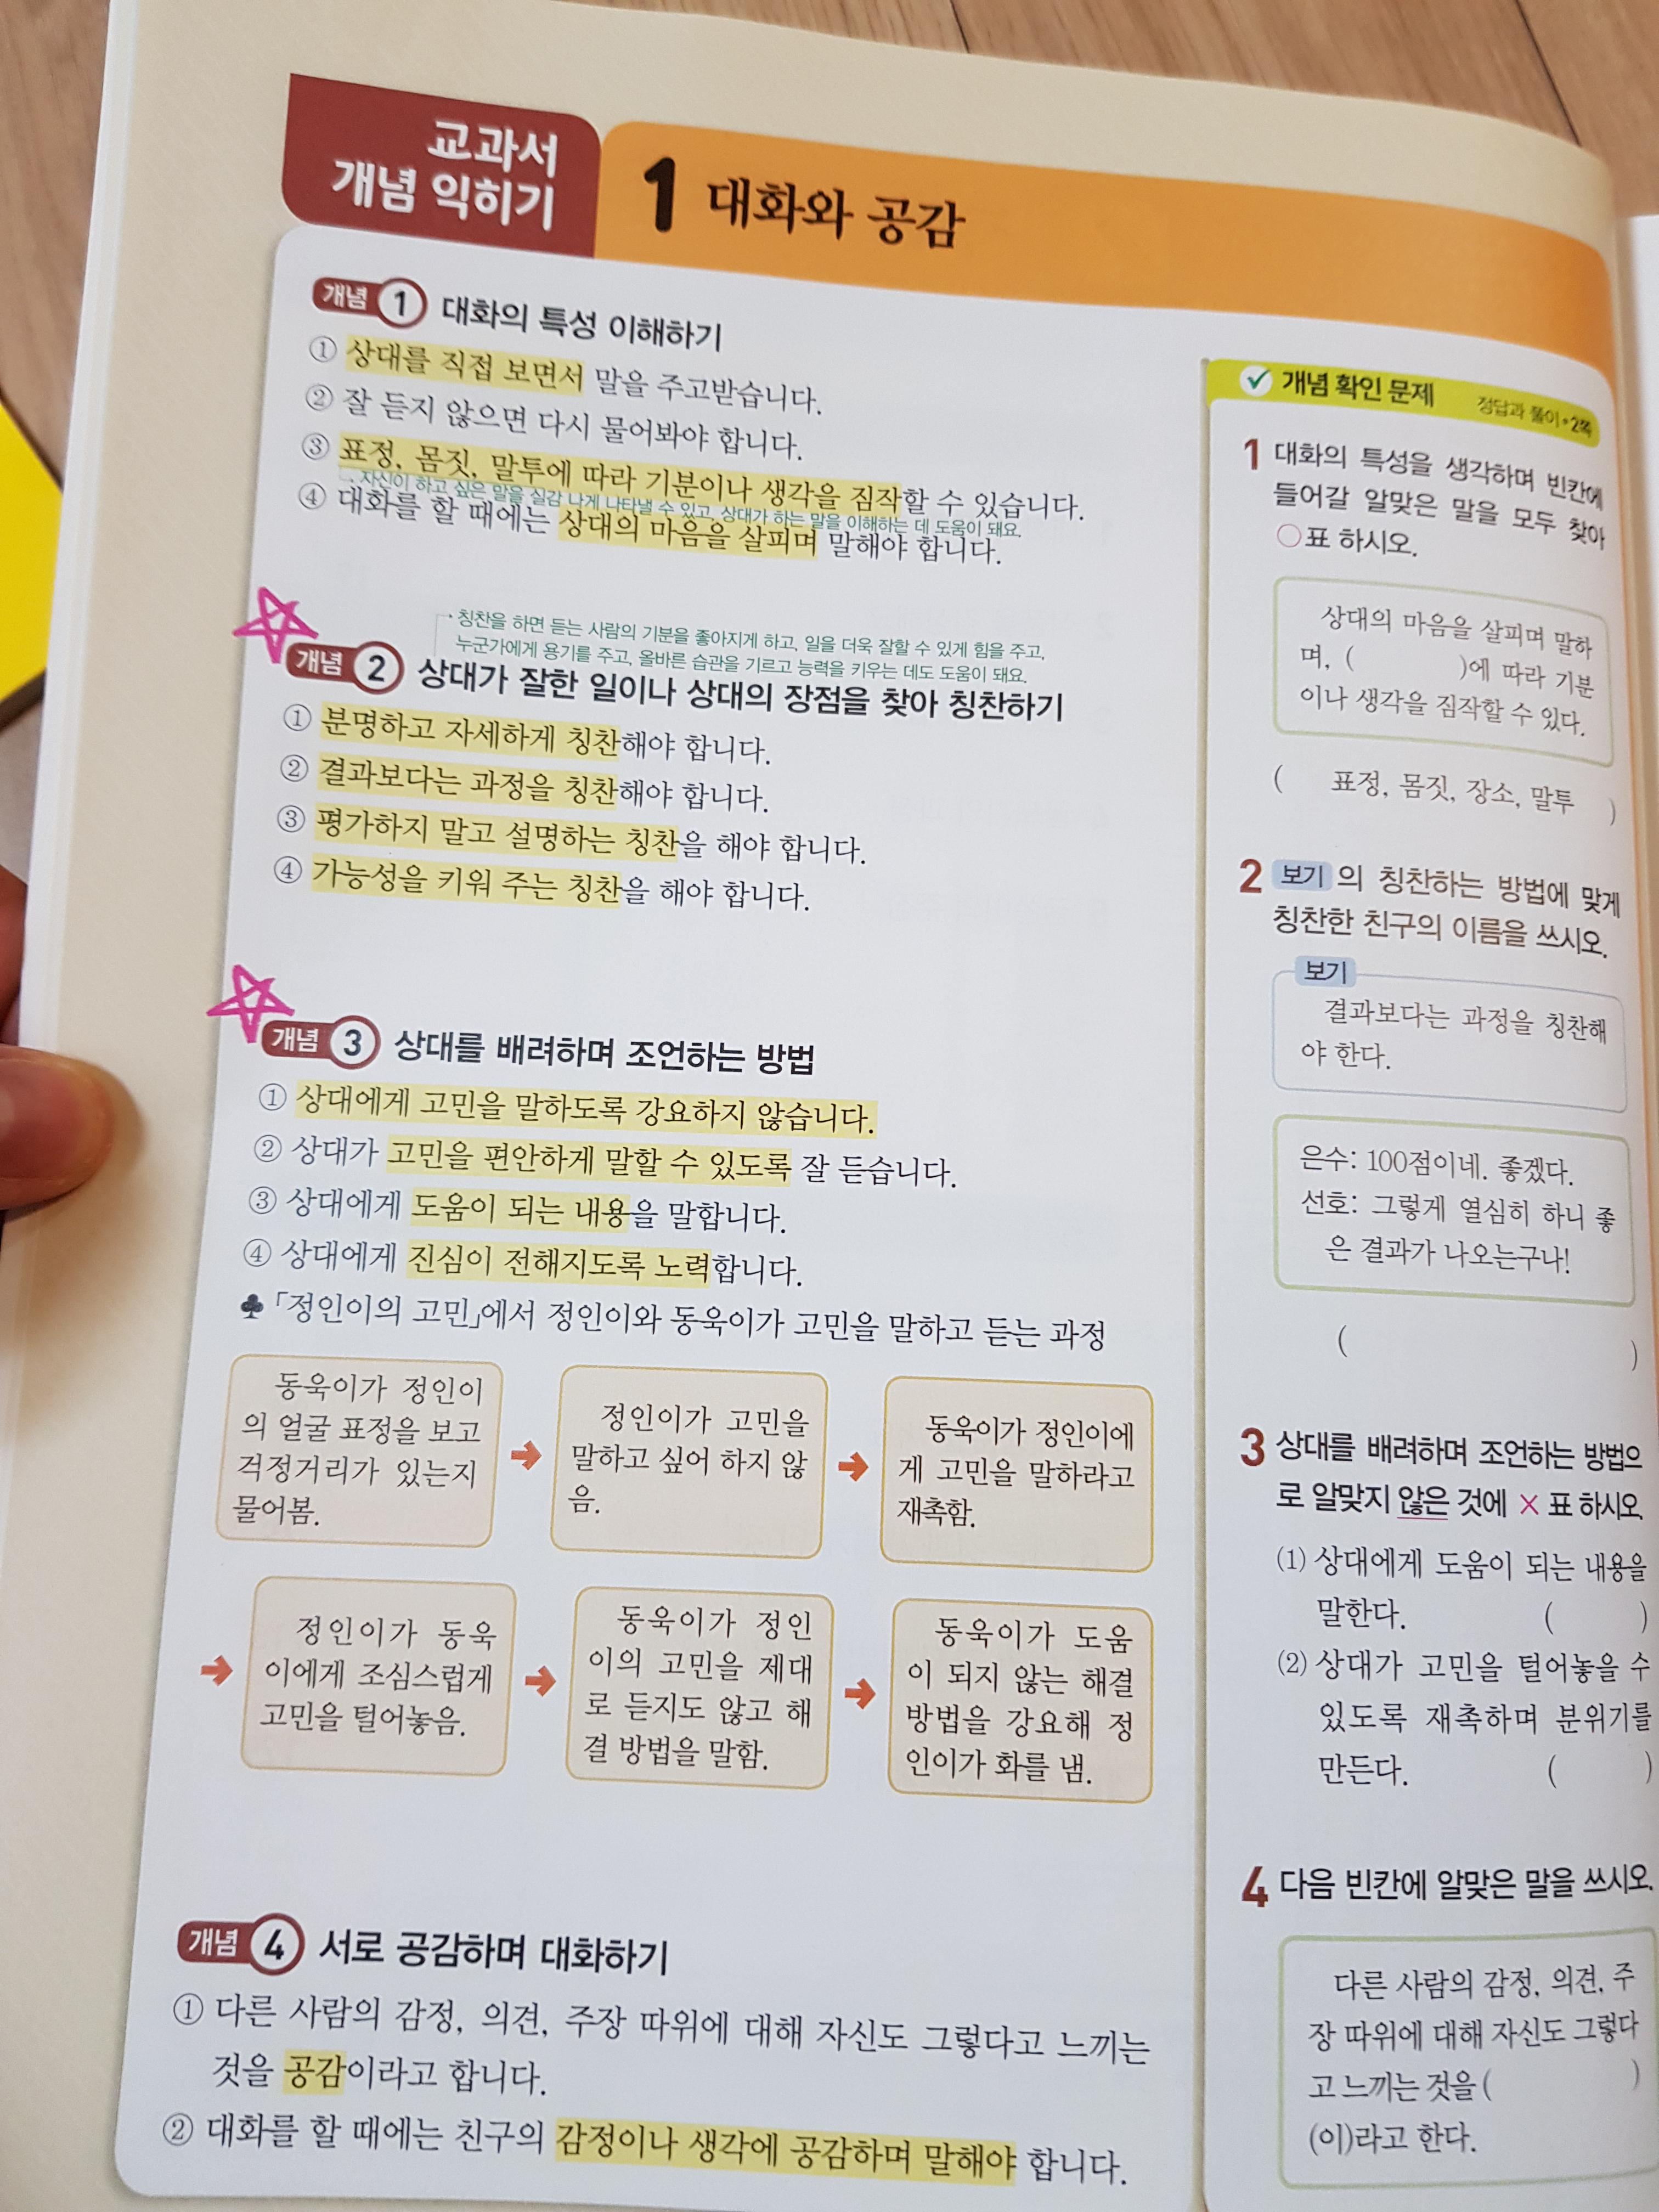 교과서
개념 익히기
1 대화와 공감
개념 1 대화의 특성 이해하기
① 상대를 직접 보면서 말을 주고받습니다.
② 잘 듣지 않으면 다시 물어봐야 합니다.
③ 표정, 몸짓, 말투에 따라 기분이나 생각을 짐작할 수 있습니다.
자신이 하고 싶은 말을 실감 나게 나타낼 수 있고, 상대가 하는 말을 이해하는 데 도움이 돼요.
④ 대화를 할 때에는 상대의 마음을 살피며 말해야 합니다.
칭찬을 하면 듣는 사람의 기분을 좋아지게 하고, 일을 더욱 잘할 수 있게 힘을 주고,
누군가에게 용기를 주고, 올바른 습관을 기르고 능력을 키우는 데도 도움이 돼요.
개념 2 상대가 잘한 일이나 상대의 장점을 찾아 칭찬하기
① 분명하고 자세하게 칭찬해야 합니다.
② 결과보다는 과정을 칭찬해야 합니다.
③ 평가하지 말고 설명하는 칭찬을 해야 합니다.
④ 가능성을 키워 주는 칭찬을 해야 합니다.
개념 3 상대를 배려하며 조언하는 방법
① 상대에게 고민을 말하도록 강요하지 않습니다.
② 상대가 고민을 편안하게 말할 수 있도록 잘 듣습니다.
③ 상대에게 도움이 되는 내용을 말합니다.
④ 상대에게 진심이 전해지도록 노력합니다.
♣ 「정인이의 고민」에서 정인이와 동욱이가 고민을 말하고 듣는 과정
동욱이가 정인이
의 얼굴 표정을 보고
걱정거리가 있는지
물어봄.
➜
정인이가 고민을
말하고 싶어 하지 않
음.
➜
동욱이가 정인이에
게 고민을 말하라고
재촉함.
➜
정인이가 동욱
이에게 조심스럽게
고민을 털어놓음.
➜
동욱이가 정인
이의 고민을 제대
로 듣지도 않고 해
결 방법을 말함.
➜
동욱이가 도움
이 되지 않는 해결
방법을 강요해 정
인이가 화를 냄.
개념 4 서로 공감하며 대화하기
① 다른 사람의 감정, 의견, 주장 따위에 대해 자신도 그렇다고 느끼는
것을 공감이라고 합니다.
② 대화를 할 때에는 친구의 감정이나 생각에 공감하며 말해야 합니다.
개념 확인 문제 정답과 풀이 • 2쪽
1 대화의 특성을 생각하며 빈칸에
들어갈 알맞은 말을 모두 찾아
○표 하시오.
상대의 마음을 살피며 말하
며, ( )에 따라 기분
이나 생각을 짐작할 수 있다.
( 표정, 몸짓, 장소, 말투 )
2 보기 의 칭찬하는 방법에 맞게
칭찬한 친구의 이름을 쓰시오.
보기
결과보다는 과정을 칭찬해
야 한다.
은수: 100점이네. 좋겠다.
선호: 그렇게 열심히 하니 좋
은 결과가 나오는구나!
( )
3 상대를 배려하며 조언하는 방법으
로 알맞지 않은 것에 × 표 하시오.
(1) 상대에게 도움이 되는 내용을
말한다. ( )
(2) 상대가 고민을 털어놓을 수
있도록 재촉하며 분위기를
만든다. ( )
4 다음 빈칸에 알맞은 말을 쓰시오.
다른 사람의 감정, 의견, 주
장 따위에 대해 자신도 그렇다
고 느끼는 것을 ( )
(이)라고 한다.